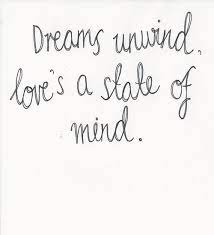 Dreams unwind,
love's a state of
mind.